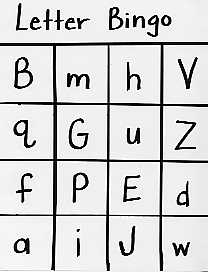 Letter Bingo
B m h V
q G u Z
f P E d
a i J w